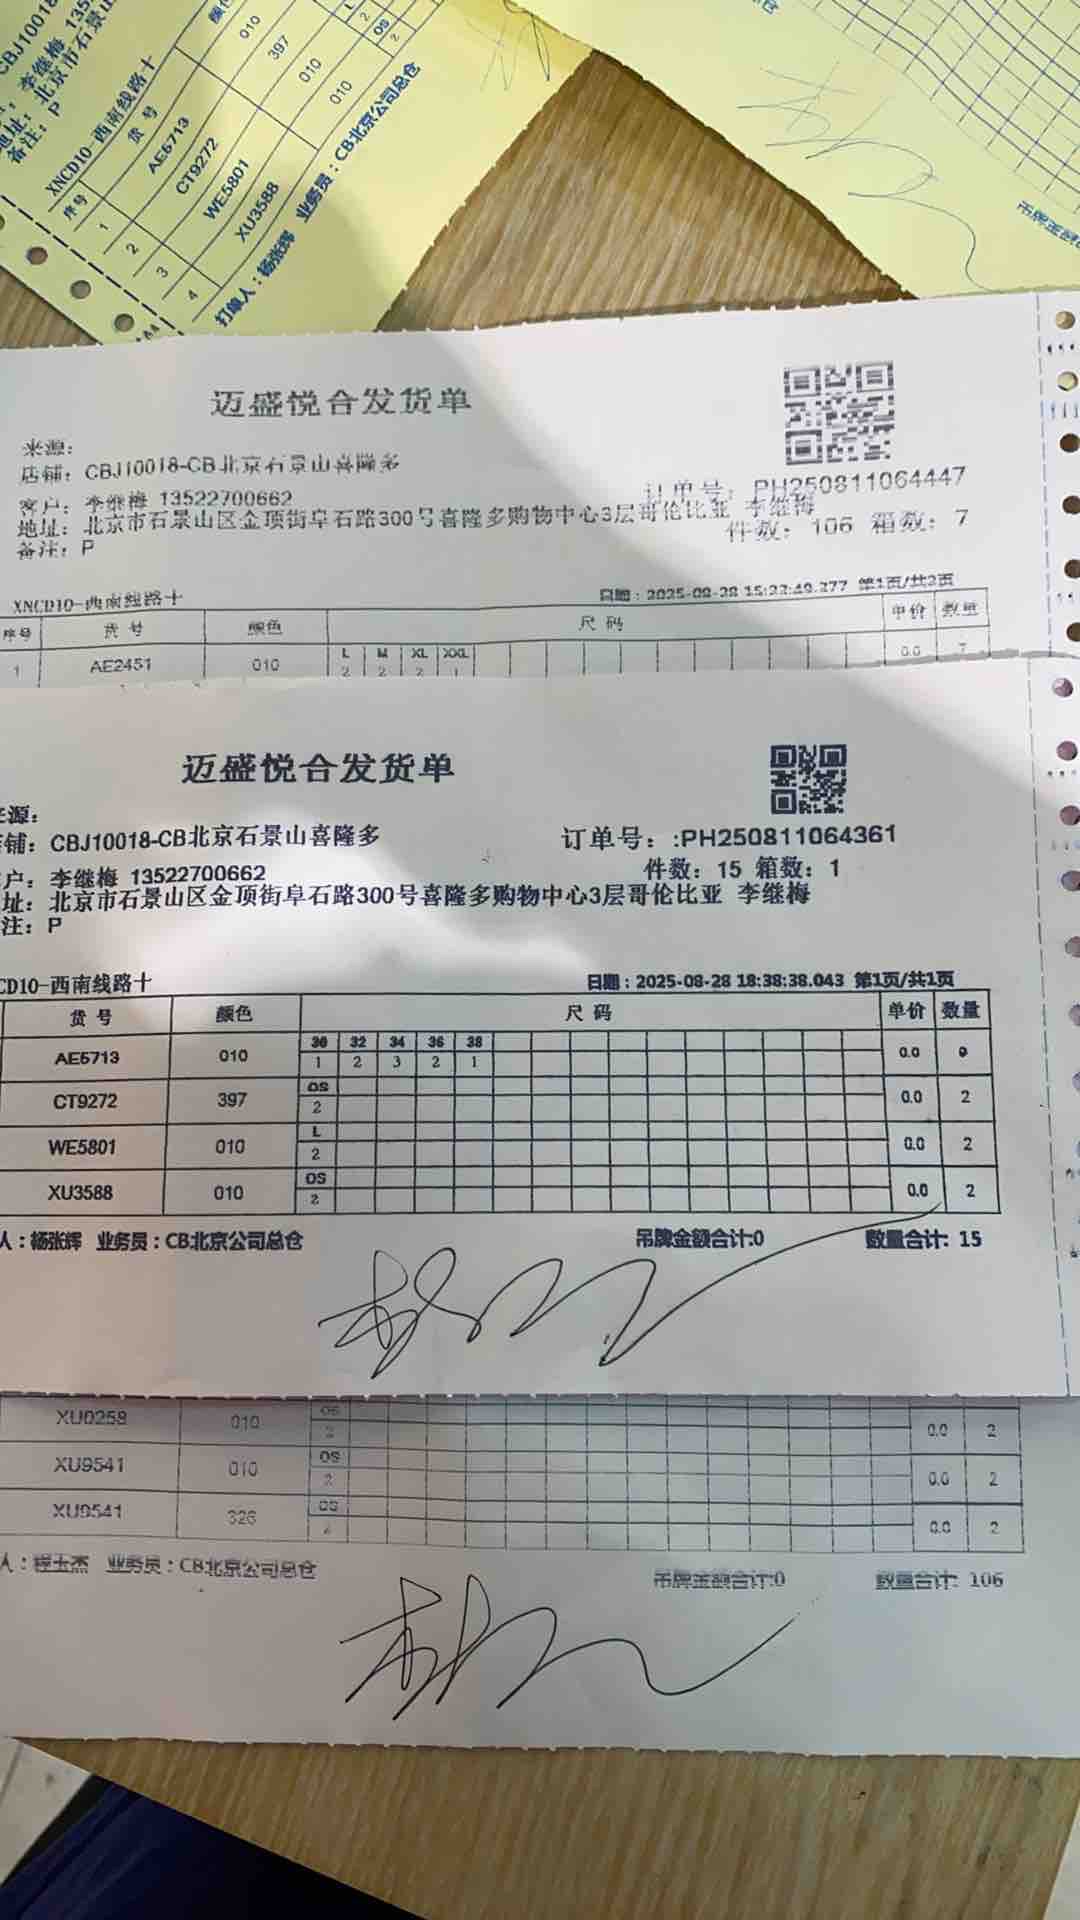 CBJ10018
李继梅 135
地址：北京市石景山
备注：P
XNCD10-西南线路十
序号 货号 颜色
1 AE5713 010
2 CT9272 397
3 WE5801 010 L 2
4 XU3588 010 OS 2
打单人：杨张辉 业务员：CB北京公司总仓
吊牌金额
迈盛悦合发货单
来源：
店铺：CBJ10018-CB北京石景山喜隆多
订单号：PH250811064447
客户：李继梅 13522700662
地址：北京市石景山区金顶街阜石路300号喜隆多购物中心3层哥伦比亚 李继梅
件数：106 箱数：7
备注：P
XNCD10-西南线路十 日期：2025-08-28 15:22:49.277 第1页/共2页
序号 货号 颜色 尺码 单价 数量
L M XL XXL
1 AE2451 010 2 2 2 1 0.0 7
迈盛悦合发货单
源：
铺：CBJ10018-CB北京石景山喜隆多 订单号：:PH250811064361
户：李继梅 13522700662 件数：15 箱数：1
址：北京市石景山区金顶街阜石路300号喜隆多购物中心3层哥伦比亚 李继梅
注：P
CD10-西南线路十 日期：2025-08-28 18:38:38.043 第1页/共1页
货号 颜色 尺码 单价 数量
30 32 34 36 38
AE5713 010 1 2 3 2 1 0.0 9
OS
CT9272 397 2 0.0 2
L
WE5801 010 2 0.0 2
OS
XU3588 010 2 0.0 2
人：杨张辉 业务员：CB北京公司总仓 吊牌金额合计:0 数量合计：15
OS
XU0258 010 2 0.0 2
OS
XU9541 010 2 0.0 2
OS
XU9541 326 2 0.0 2
人：程玉杰 业务员：CB北京公司总仓 吊牌金额合计:0 数量合计：106